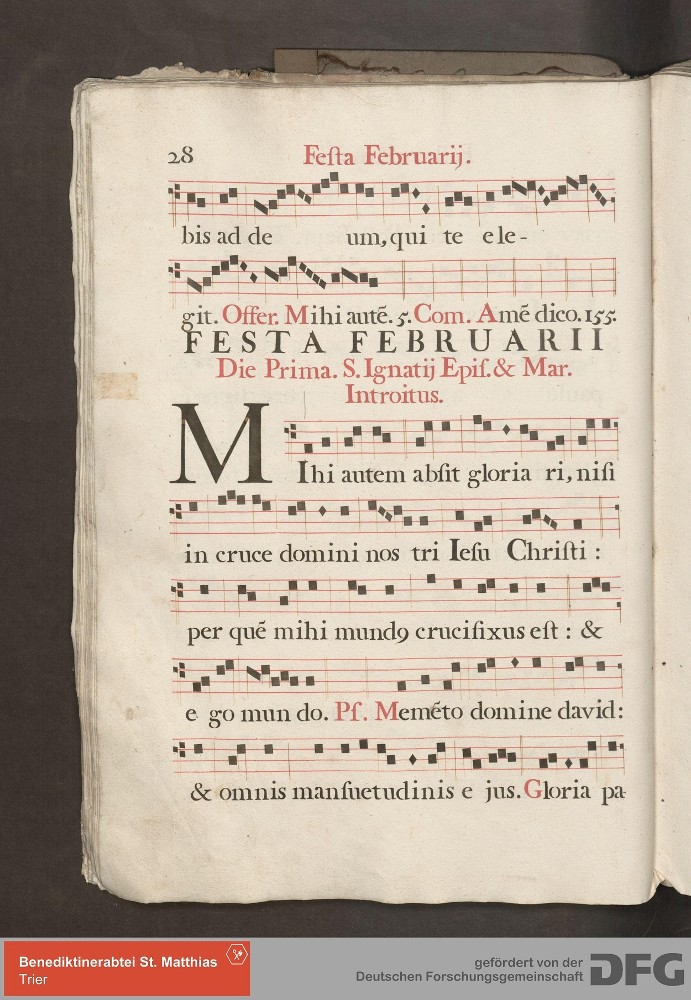 28 Feſta Februarij.
bis ad de um, qui te ele-
git. Offer. Mihi autē. 5. Com. Amē dico. 155.
FESTA FEBRUARII
Die Prima. S. Ignatij Epiſ. & Mar.
Introitus.
MIhi autem abſit gloria ri, niſi
in cruce domini nos tri Ieſu Chriſti :
per quē mihi mundꝯ crucifixus eſt : &
e go mun do. Pſ. Memēto domine david:
& omnis manſuetudinis e jus. Gloria pa
Benediktinerabtei St. Matthias
Trier
gefördert von der
Deutschen Forschungsgemeinschaft DFG